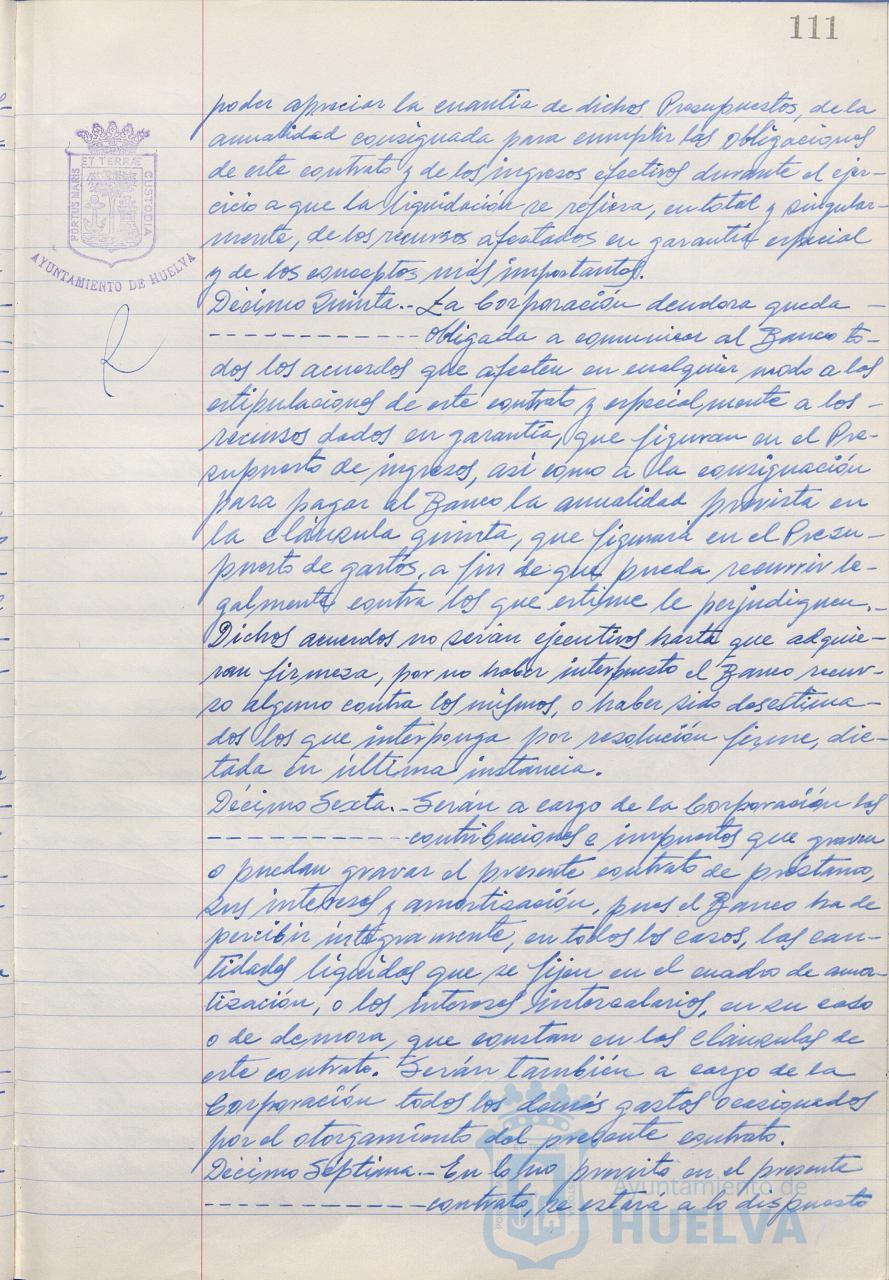 111
PORTUS MARIS
ET TERRÆ
CUSTODIA
AYUNTAMIENTO DE HUELVA
poder apreciar la cuantía de dichos Presupuestos, de la
anualidad consignada para cumplir las obligaciones
de este contrato y de los ingresos efectivos durante el ejer-
cicio a que la liquidación se refiera, en total y singular-
mente, de los recursos afectados en garantía especial
y de los conceptos más importantes.
Décimo Quinta.- La Corporación deudora queda -
------------ obligada a comunicar al Banco to-
dos los acuerdos que afecten en cualquier modo a las
estipulaciones de este contrato y especialmente a los -
recursos dados en garantía, que figuran en el Pre-
supuesto de ingresos, así como a la consignación
para pagar al Banco la anualidad prevista en
la cláusula quinta, que figurará en el Presu-
puesto de gastos, a fin de que pueda recurrir le-
galmente contra los que estime le perjudiquen.-
Dichos acuerdos no serán ejecutivos hasta que adquie-
ran firmeza, por no haber interpuesto el Banco recur-
so alguno contra los mismos, o haber sido desestima-
dos los que interponga por resolución firme, dic-
tada en última instancia.
Décimo Sexta.- Serán a cargo de la Corporación las
------------ contribuciones e impuestos que graven
o puedan gravar el presente contrato de préstamo,
sus intereses y amortización, pues el Banco ha de
percibir íntegramente, en todos los casos, las can-
tidades líquidas que se fijen en el cuadro de amor-
tización, o los intereses intercalarios, en su caso
o de demora, que constan en las cláusulas de
este contrato. Serán también a cargo de la
Corporación todos los demás gastos ocasionados
por el otorgamiento del presente contrato.
Décimo Séptima.- En lo no previsto en el presente
------------ contrato, se estará a lo dispuesto
Ayuntamiento de
HUELVA